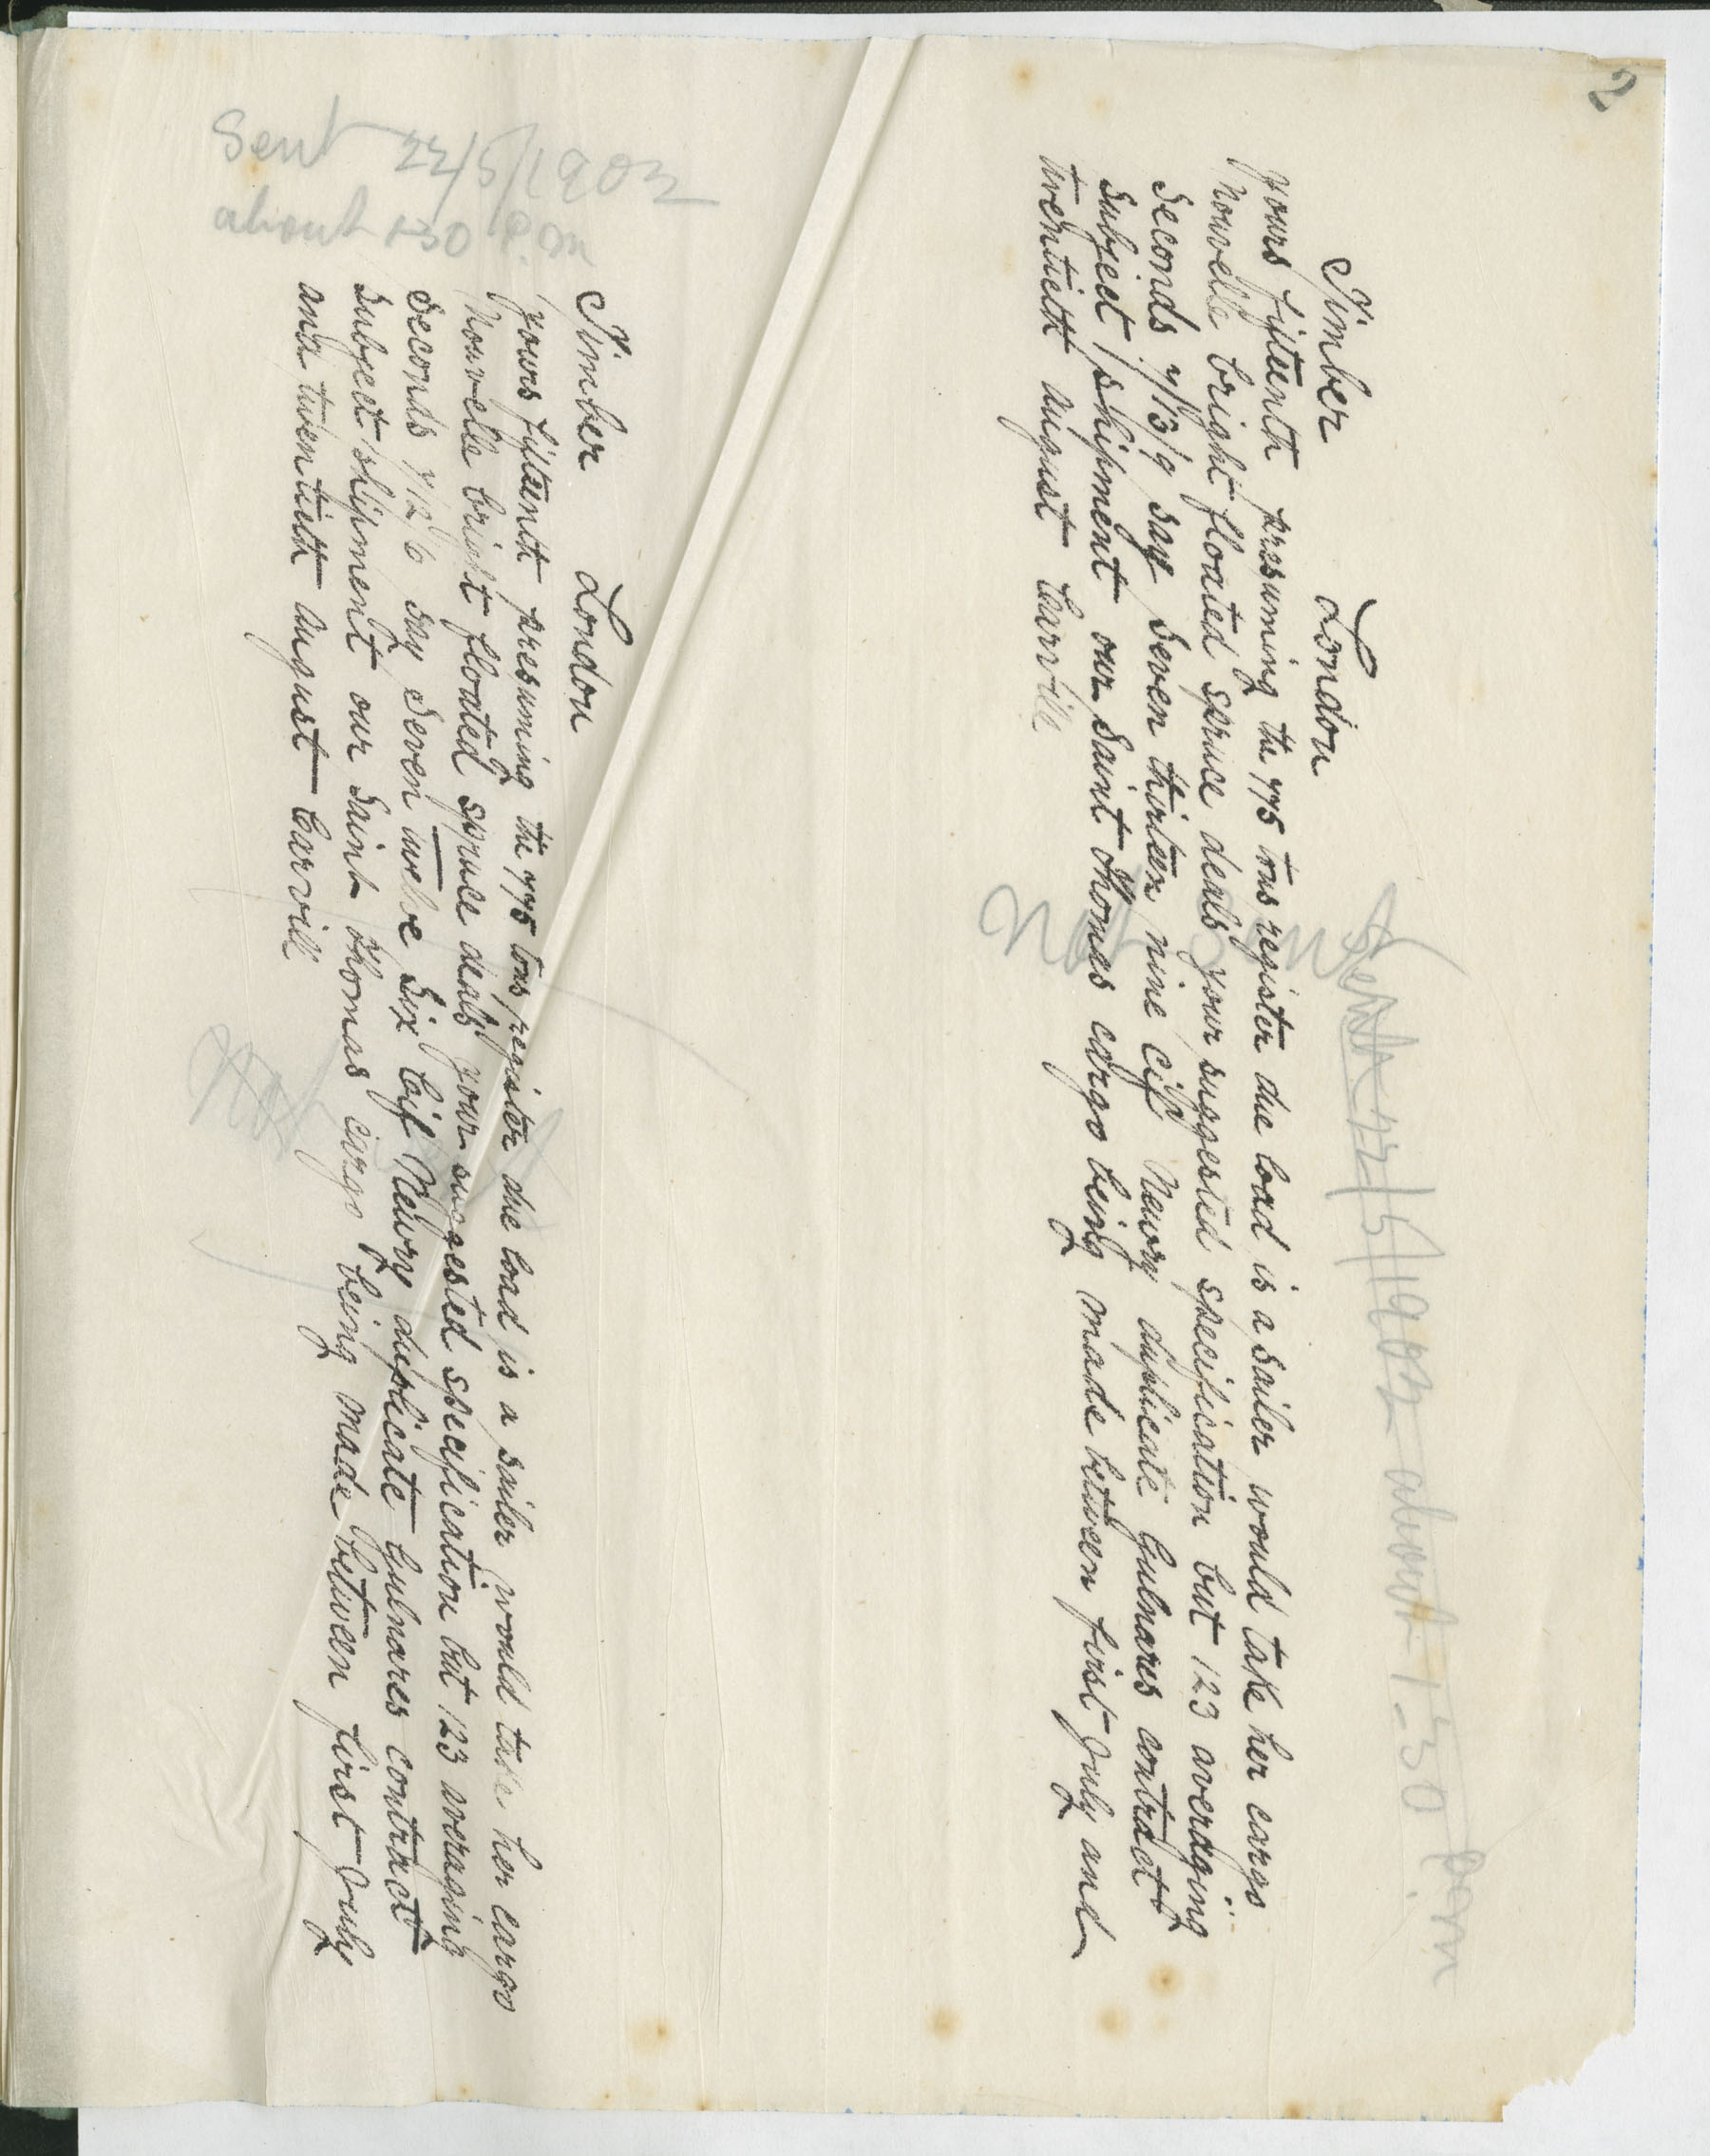 2
Sent 22/5/1902 about 1-30 P.m
Timber London
Yours fifteenth presuming the 775 tons register due load is a sailer would take her cargo
Nouvelle bright floated spruce deals your suggested specification but 123 averaging
seconds 7/13/9 say seven thirteen nine cif Newry duplicate Gulnares contract
subject shipment our Saint Thomas cargo being made between first July and
twentieth august Carvill
Not Sent
Sent 22/5/1902
about 1-30 P.m
Timber London
Yours fifteenth presuming the 775 tons register due load is a sailer would take her cargo
Nouvelle bright floated spruce deals your suggested specification but 123 averaging
seconds 7/12/6 say seven twelve six Cif Newry duplicate Gulnares contract
subject shipment our Saint Thomas cargo being made between first July
and twentieth august Carvill